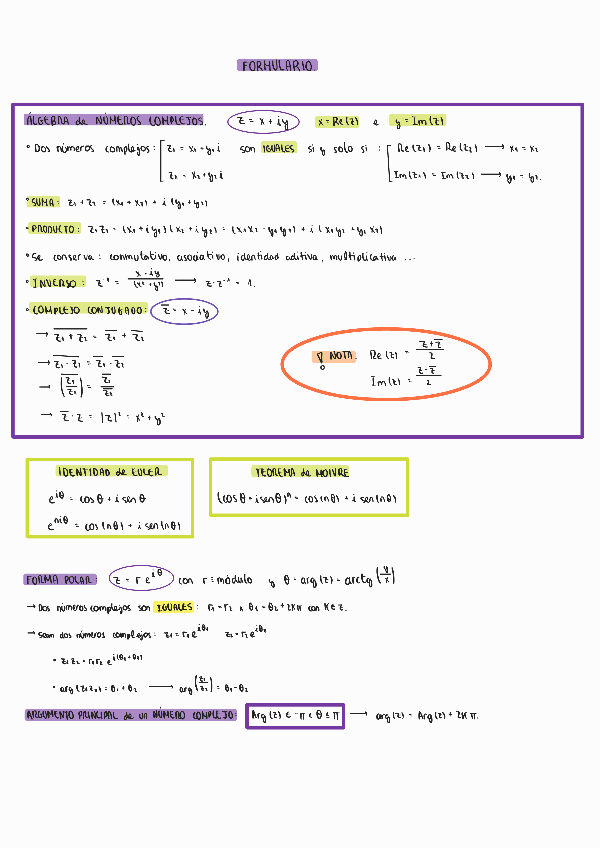 FORMULARIO
ÁLGEBRA de NÚMEROS COMPLEJOS. z = x + iy x = Re(z) e y = Im(z)
• Dos números complejos: [ z₁ = x₁ + y₁ i son IGUALES si y solo si : [ Re(z₁) = Re(z₂) → x₁ = x₂
z₂ = x₂ + y₂ i Im(z₁) = Im(z₂) → y₁ = y₂.
• SUMA: z₁ + z₂ = (x₁ + x₂) + i (y₁ + y₂)
• PRODUCTO: z₁ z₂ = (x₁ + i y₁)(x₂ + i y₂) = (x₁x₂ - y₁y₂) + i (x₁y₂ + y₁x₂)
• Se conserva: conmutativo, asociativo, identidad aditiva, multiplicativa ...
• INVERSO: z⁻¹ = (x - iy)/(x² + y²) → z·z⁻¹ = 1.
• COMPLEJO CONJUGADO: z̅ = x - iy
→ \overline{z₁ + z₂} = \overline{z₁} + \overline{z₂}
→ \overline{z₁ · z₂} = \overline{z₁} · \overline{z₂}
→ \overline{(z₁/z₂)} = \overline{z₁}/\overline{z₂}
→ z̅ · z = |z|² = x² + y²
NOTA: Re(z) = (z + z̅)/2
Im(z) = (z - z̅)/2
IDENTIDAD de EULER
e^{iθ} = cos θ + i sen θ
e^{niθ} = cos(nθ) + i sen(nθ)
TEOREMA de MOIVRE
(cos θ + i sen θ)ⁿ = cos(nθ) + i sen(nθ)
FORMA POLAR: z = r e^{iθ} con r ≡ módulo y θ = arg(z) = arctg(y/x)
→ Dos números complejos son IGUALES: r₁ = r₂ ∧ θ₁ = θ₂ + 2Kπ con K ∈ Z.
→ Sean dos números complejos: z₁ = r₁ e^{iθ₁} z₂ = r₂ e^{iθ₂}
• z₁ z₂ = r₁ r₂ e^{i(θ₁ + θ₂)}
• arg(z₁z₂) = θ₁ + θ₂ → arg(z₁/z₂) = θ₁ - θ₂
ARGUMENTO PRINCIPAL de un NÚMERO COMPLEJO: Arg(z) ∈ -π < θ ≤ π → arg(z) = Arg(z) + 2Kπ.